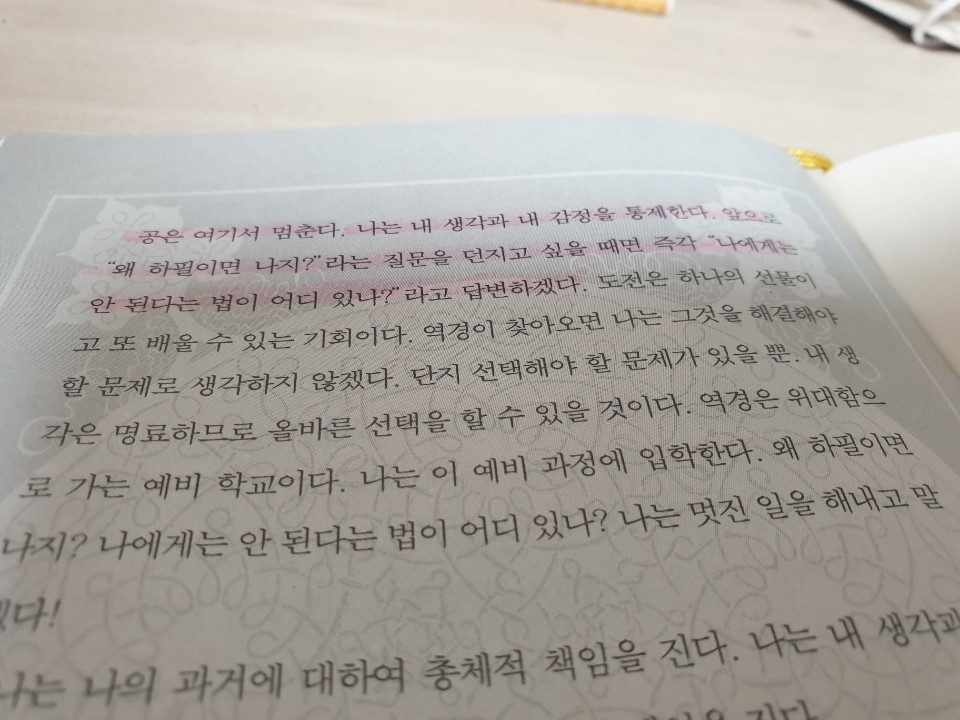 공은 여기서 멈춘다. 나는 내 생각과 내 감정을 통제한다. 앞으로
“왜 하필이면 나지?”라는 질문을 던지고 싶을 때면 즉각 “나에게는
안 된다는 법이 어디 있나?”라고 답변하겠다. 도전은 하나의 선물이
고 또 배울 수 있는 기회이다. 역경이 찾아오면 나는 그것을 해결해야
할 문제로 생각하지 않겠다. 단지 선택해야 할 문제가 있을 뿐. 내 생
각은 명료하므로 올바른 선택을 할 수 있을 것이다. 역경은 위대함으
로 가는 예비 학교이다. 나는 이 예비 과정에 입학한다. 왜 하필이면
나지? 나에게는 안 된다는 법이 어디 있나? 나는 멋진 일을 해내고 말
겠다!
나는 나의 과거에 대하여 총체적 책임을 진다. 나는 내 생각과
진다.